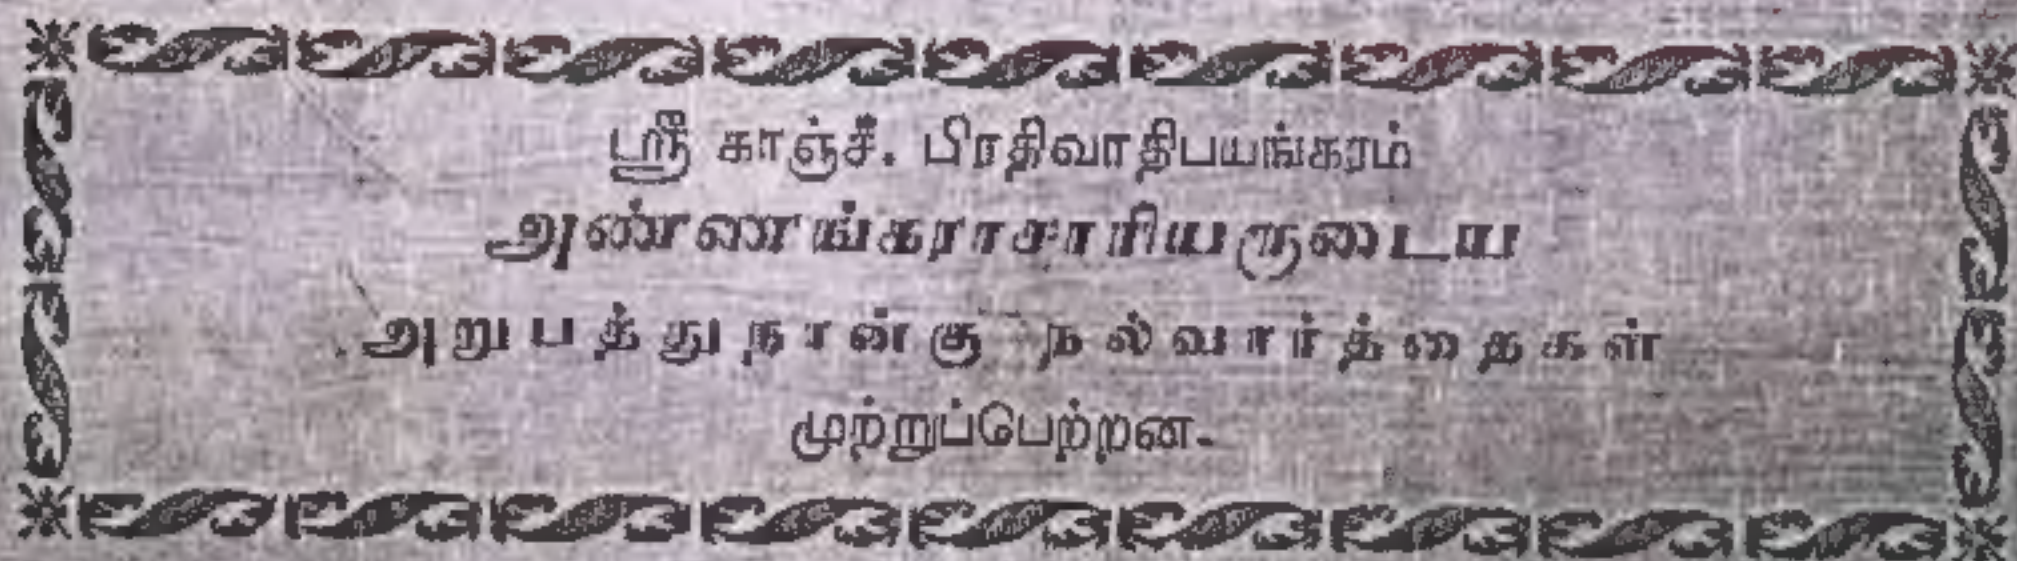 ஸ்ரீ காஞ்சீ. பிரதிவாதிபயங்கரம்
அண்ணங்கராசாரியருடைய
அறுபத்துநான்கு நல்வார்த்தைகள்
முற்றுப்பெற்றன.